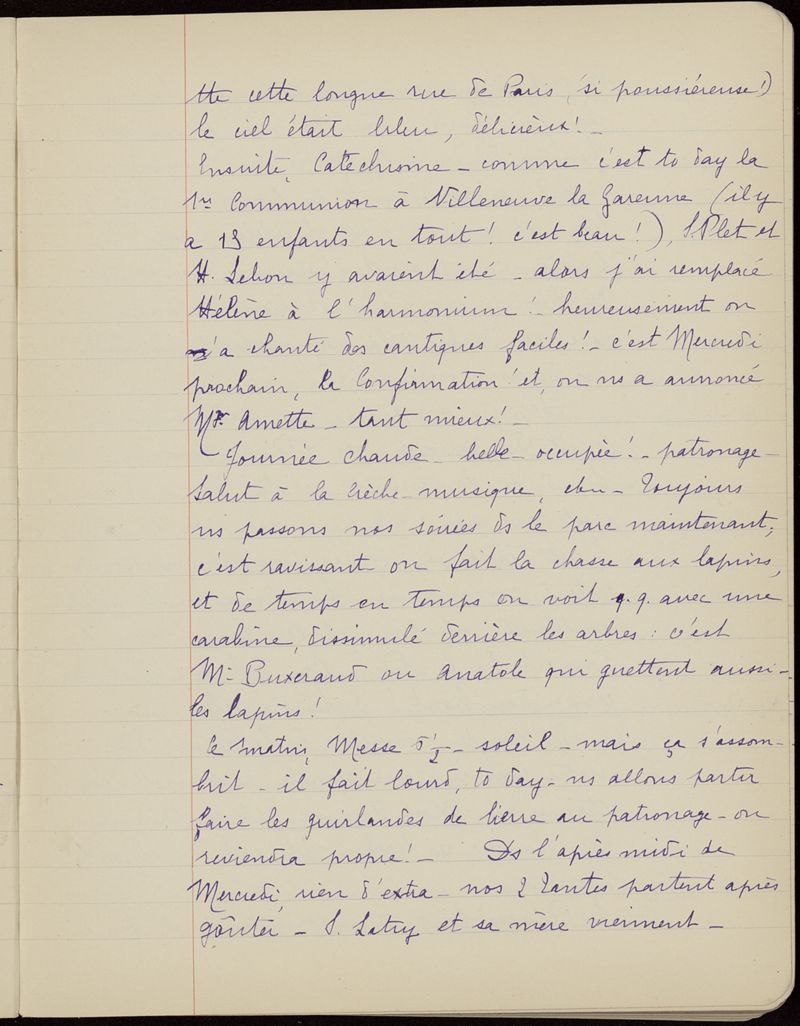 tte cette longue rue de Paris, si poussiéreuse!)
le ciel était bleu, délicieux! _
Ensuite, Catéchisme _ comme c'est to day la
1re Communion à Villeneuve la Garenne (il y
a 13 enfants en tout! c'est beau!), S. Plet et
H. Lebon y avaient été _ alors j'ai remplacé
Hélène à l'harmonium! _ heureusement on
n'a chanté des cantiques faciles! _ c'est Mercredi
prochain, la Confirmation! et, on ns a annoncé
Mgr. Amette _ tant mieux! _
Journée chaude _ belle _ occupée! _ patronage _
Salut à la Crèche _ musique, etc _ Toujours
ns passons nos soirées ds le parc maintenant;
c'est ravissant _ on fait la chasse aux lapins,
et de temps en temps on voit q.q. avec une
carabine, dissimulé derrière les arbres : c'est
Mr Buxeraud ou Anatole qui guettent aussi _
les lapins!
Ce matin, Messe 5 1/2 _ soleil _ mais ça s'assom-
brit _ il fait lourd, to day _ ns allons partir
faire les guirlandes de lierre au patronage _ on
reviendra propre! _ Ds l'après midi de
Mercredi, rien d'extra _ nos 2 Tantes partent après
goûter _ S. Latry et sa mère viennent _